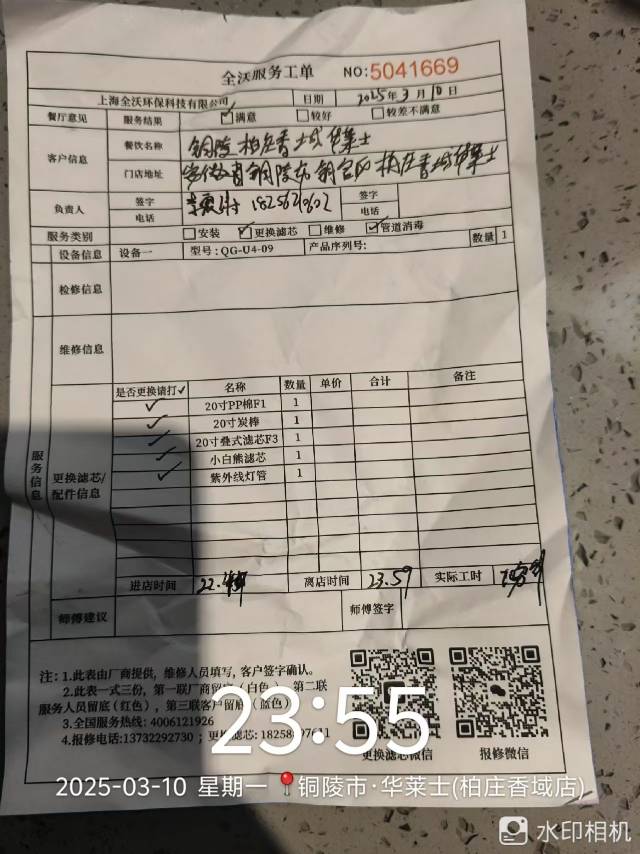 全沃服务工单 NO:5041669
上海全沃环保科技有限公司 日期 2025年3月10日
餐厅意见 服务结果 ☑满意 □较好 □较差不满意
客户信息 餐饮名称 铜陵柏庄香域华莱士
门店地址 安徽省铜陵市铜官区柏庄香域华莱士
负责人 签字 签字
电话 电话
服务类别 □安装 ☑更换滤芯 □维修 ☑管道消毒
设备信息 设备一 型号:QG-U4-09 产品序列号: 数量 1
检修信息
维修信息
服务信息
更换滤芯/配件信息
是否更换请打✓ 名称 数量 单价 合计 备注
✓ 20寸PP棉F1 1
✓ 20寸炭棒 1
✓ 20寸叠式滤芯F3 1
✓ 小白熊滤芯 1
✓ 紫外线灯管 1
进店时间 离店时间 23.59 实际工时
师傅建议 师傅签字
注:1.此表由厂商提供,维修人员填写,客户签字确认。
2.此表一式三份,第一联厂商留底(白色),第二联
服务人员留底(红色),第三联客户留底(蓝色)
3.全国服务热线:4006121926
4.报修电话:13732292730;更换滤芯:
更换滤芯微信 报修微信
23:55
2025-03-10 星期一 铜陵市·华莱士(柏庄香域店)
水印相机